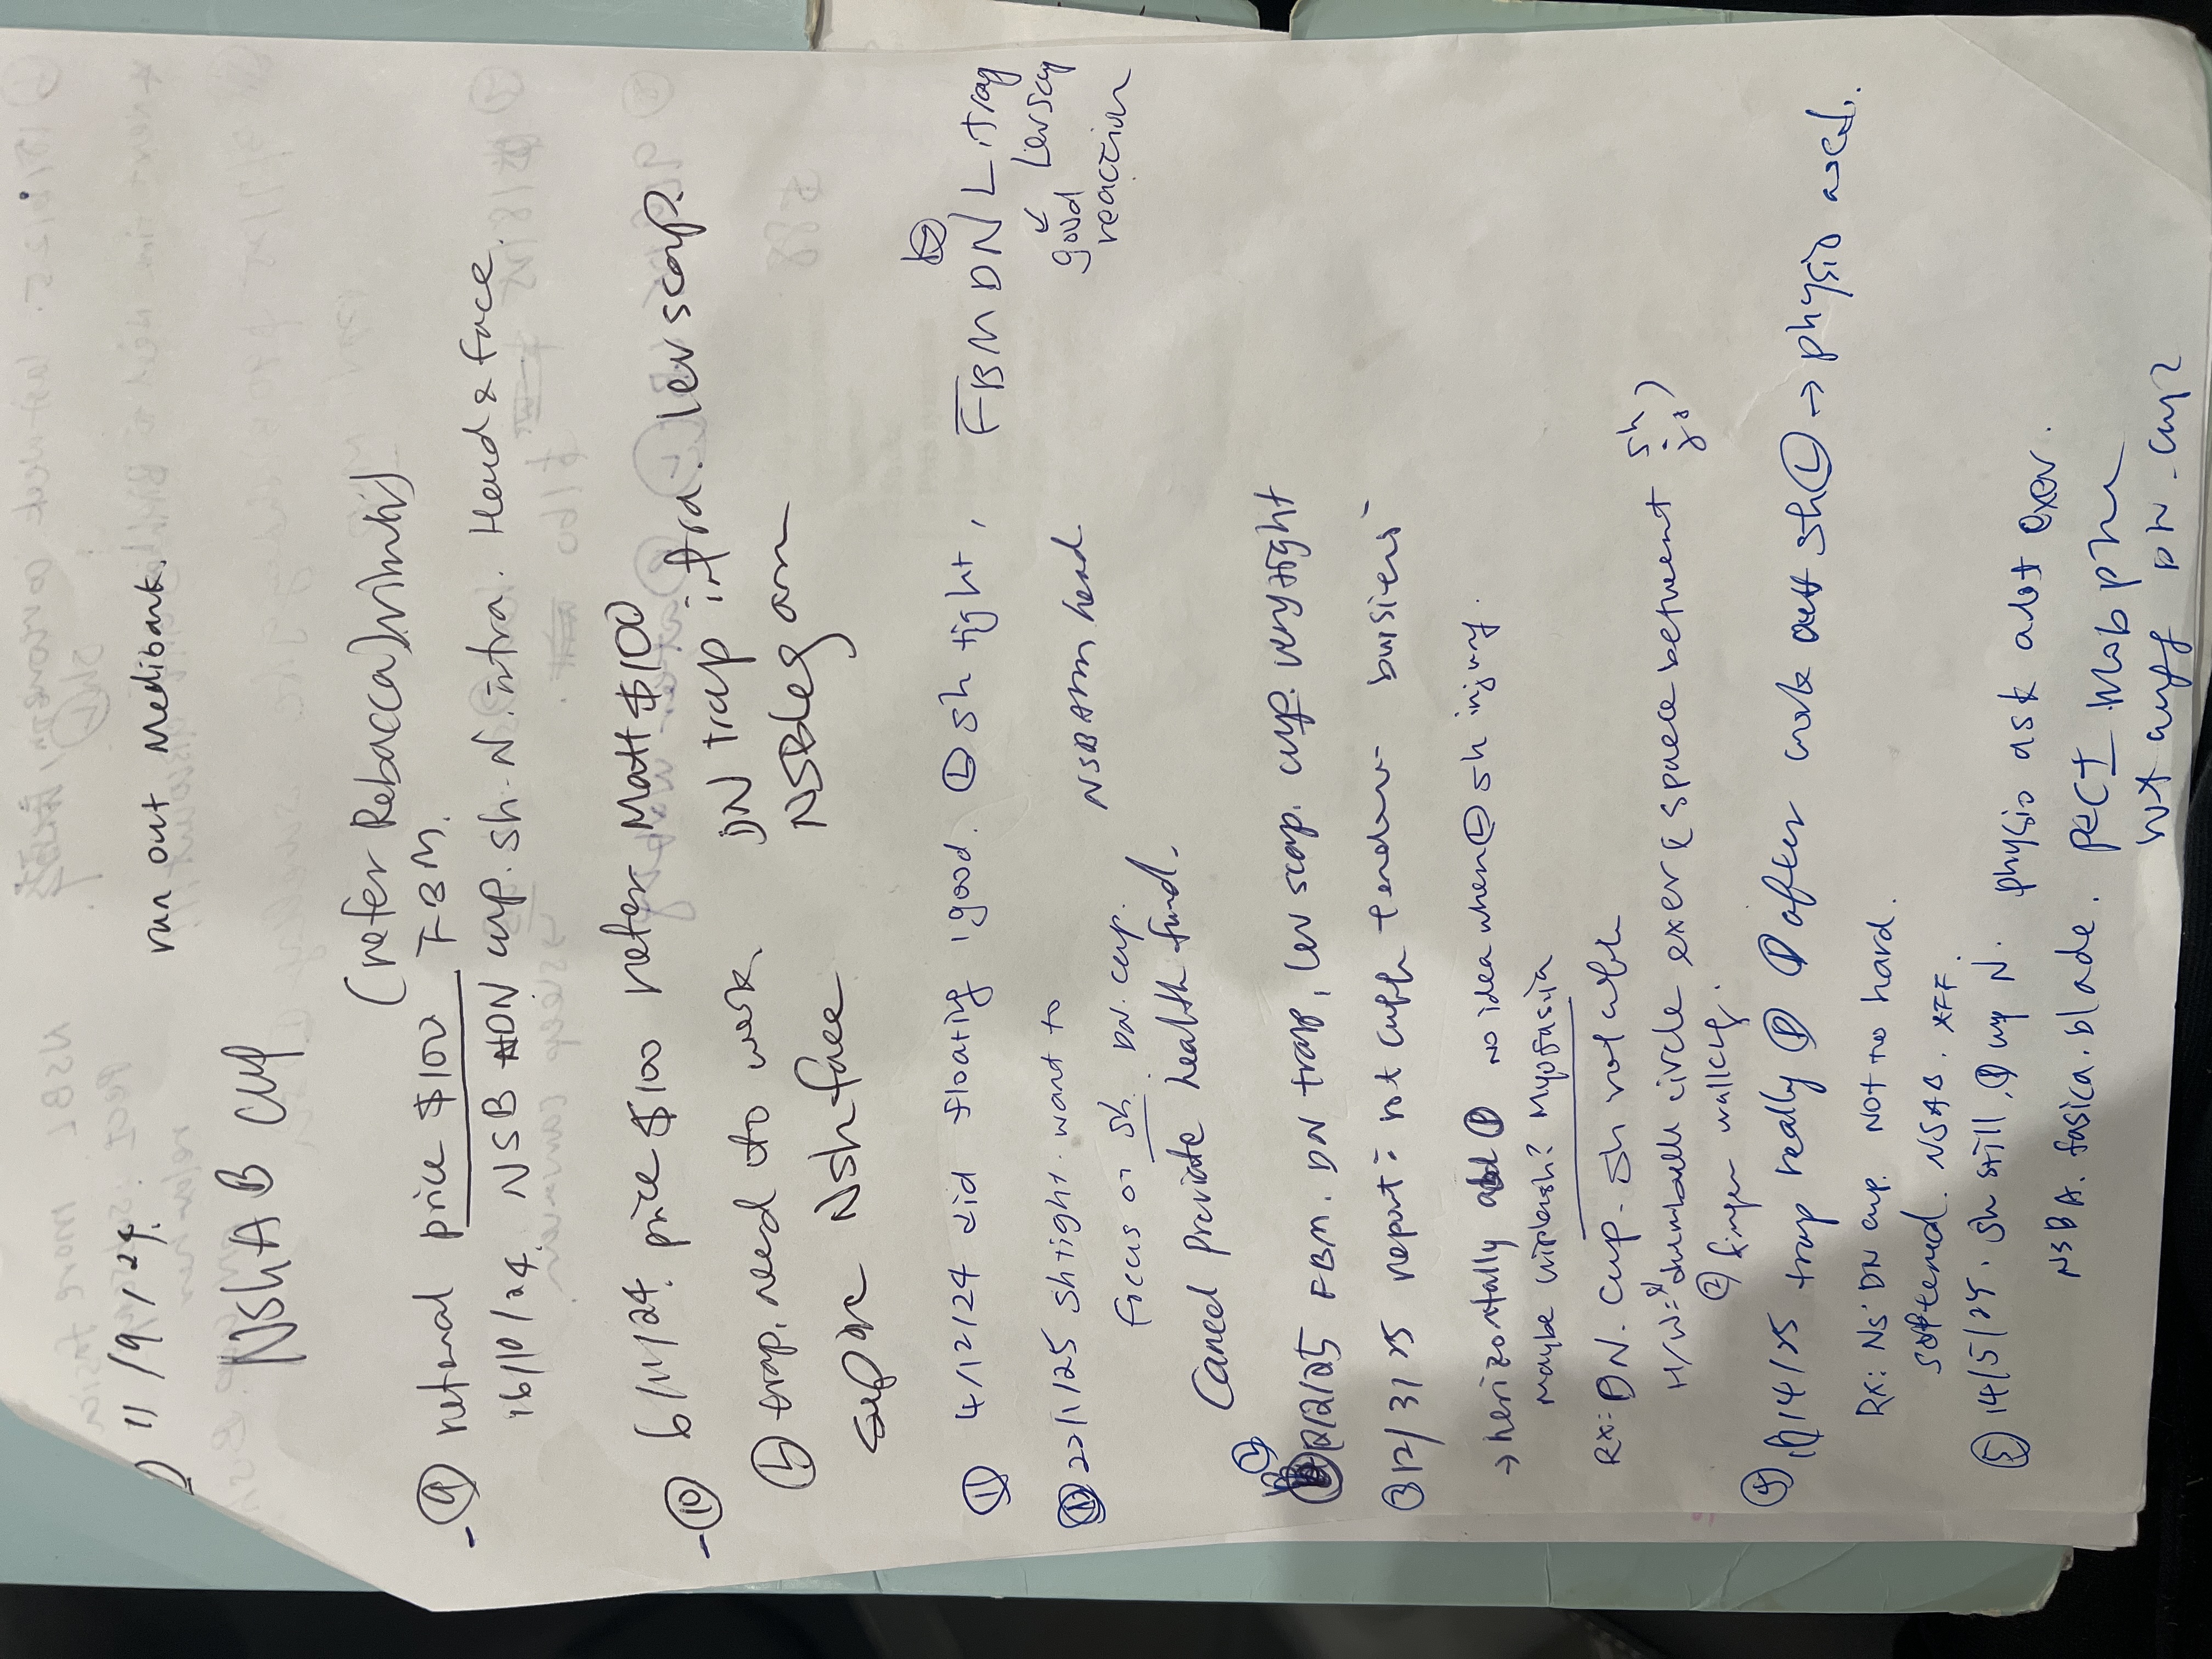 11/9/24. run out Medibank.
NshAB cup
(refer Rebacca)
- ⑨ retional price $100 FBM.
16/10/24. NSB DN cup. sh. N. intra. Head & face.
- ⑩ 6/11/24. price $100 refer Matt $100
Ⓛ trap. need to work. DN trap infra. lev scap.
N sh face NSB leg arm
⑪ 4/12/24 did floating good. Ⓛ sh tight, FBM DN L. trap
Lev scap
good
reaction
22/1/25 sh tight. want to NSB Arm head
focus on sh. DN. cup.
Canned Private health fund.
12/2/25 FBM. DN trap, lev scap. cup. very tight
③ 12/3/25 report: rot cuff tendon bursiens
→ herizontally Ⓟ No idea when Ⓛ sh injury.
maybe wiplash? Myofasia
RX: DN. cup. sh rot cuff
H/W: dumbell circle exer (space between sh jo)
② finger wall
④ 14/25 trap really Ⓟ Ⓟ after work sh Ⓛ → physio
RX: Ns DN cup. Not too hard.
softened. XFF.
⑤ 14/5/25. sh still Ⓟ N. physio ask abt exer.
NSBA. fasica. blade. pect mob
rot cuff DN. cup